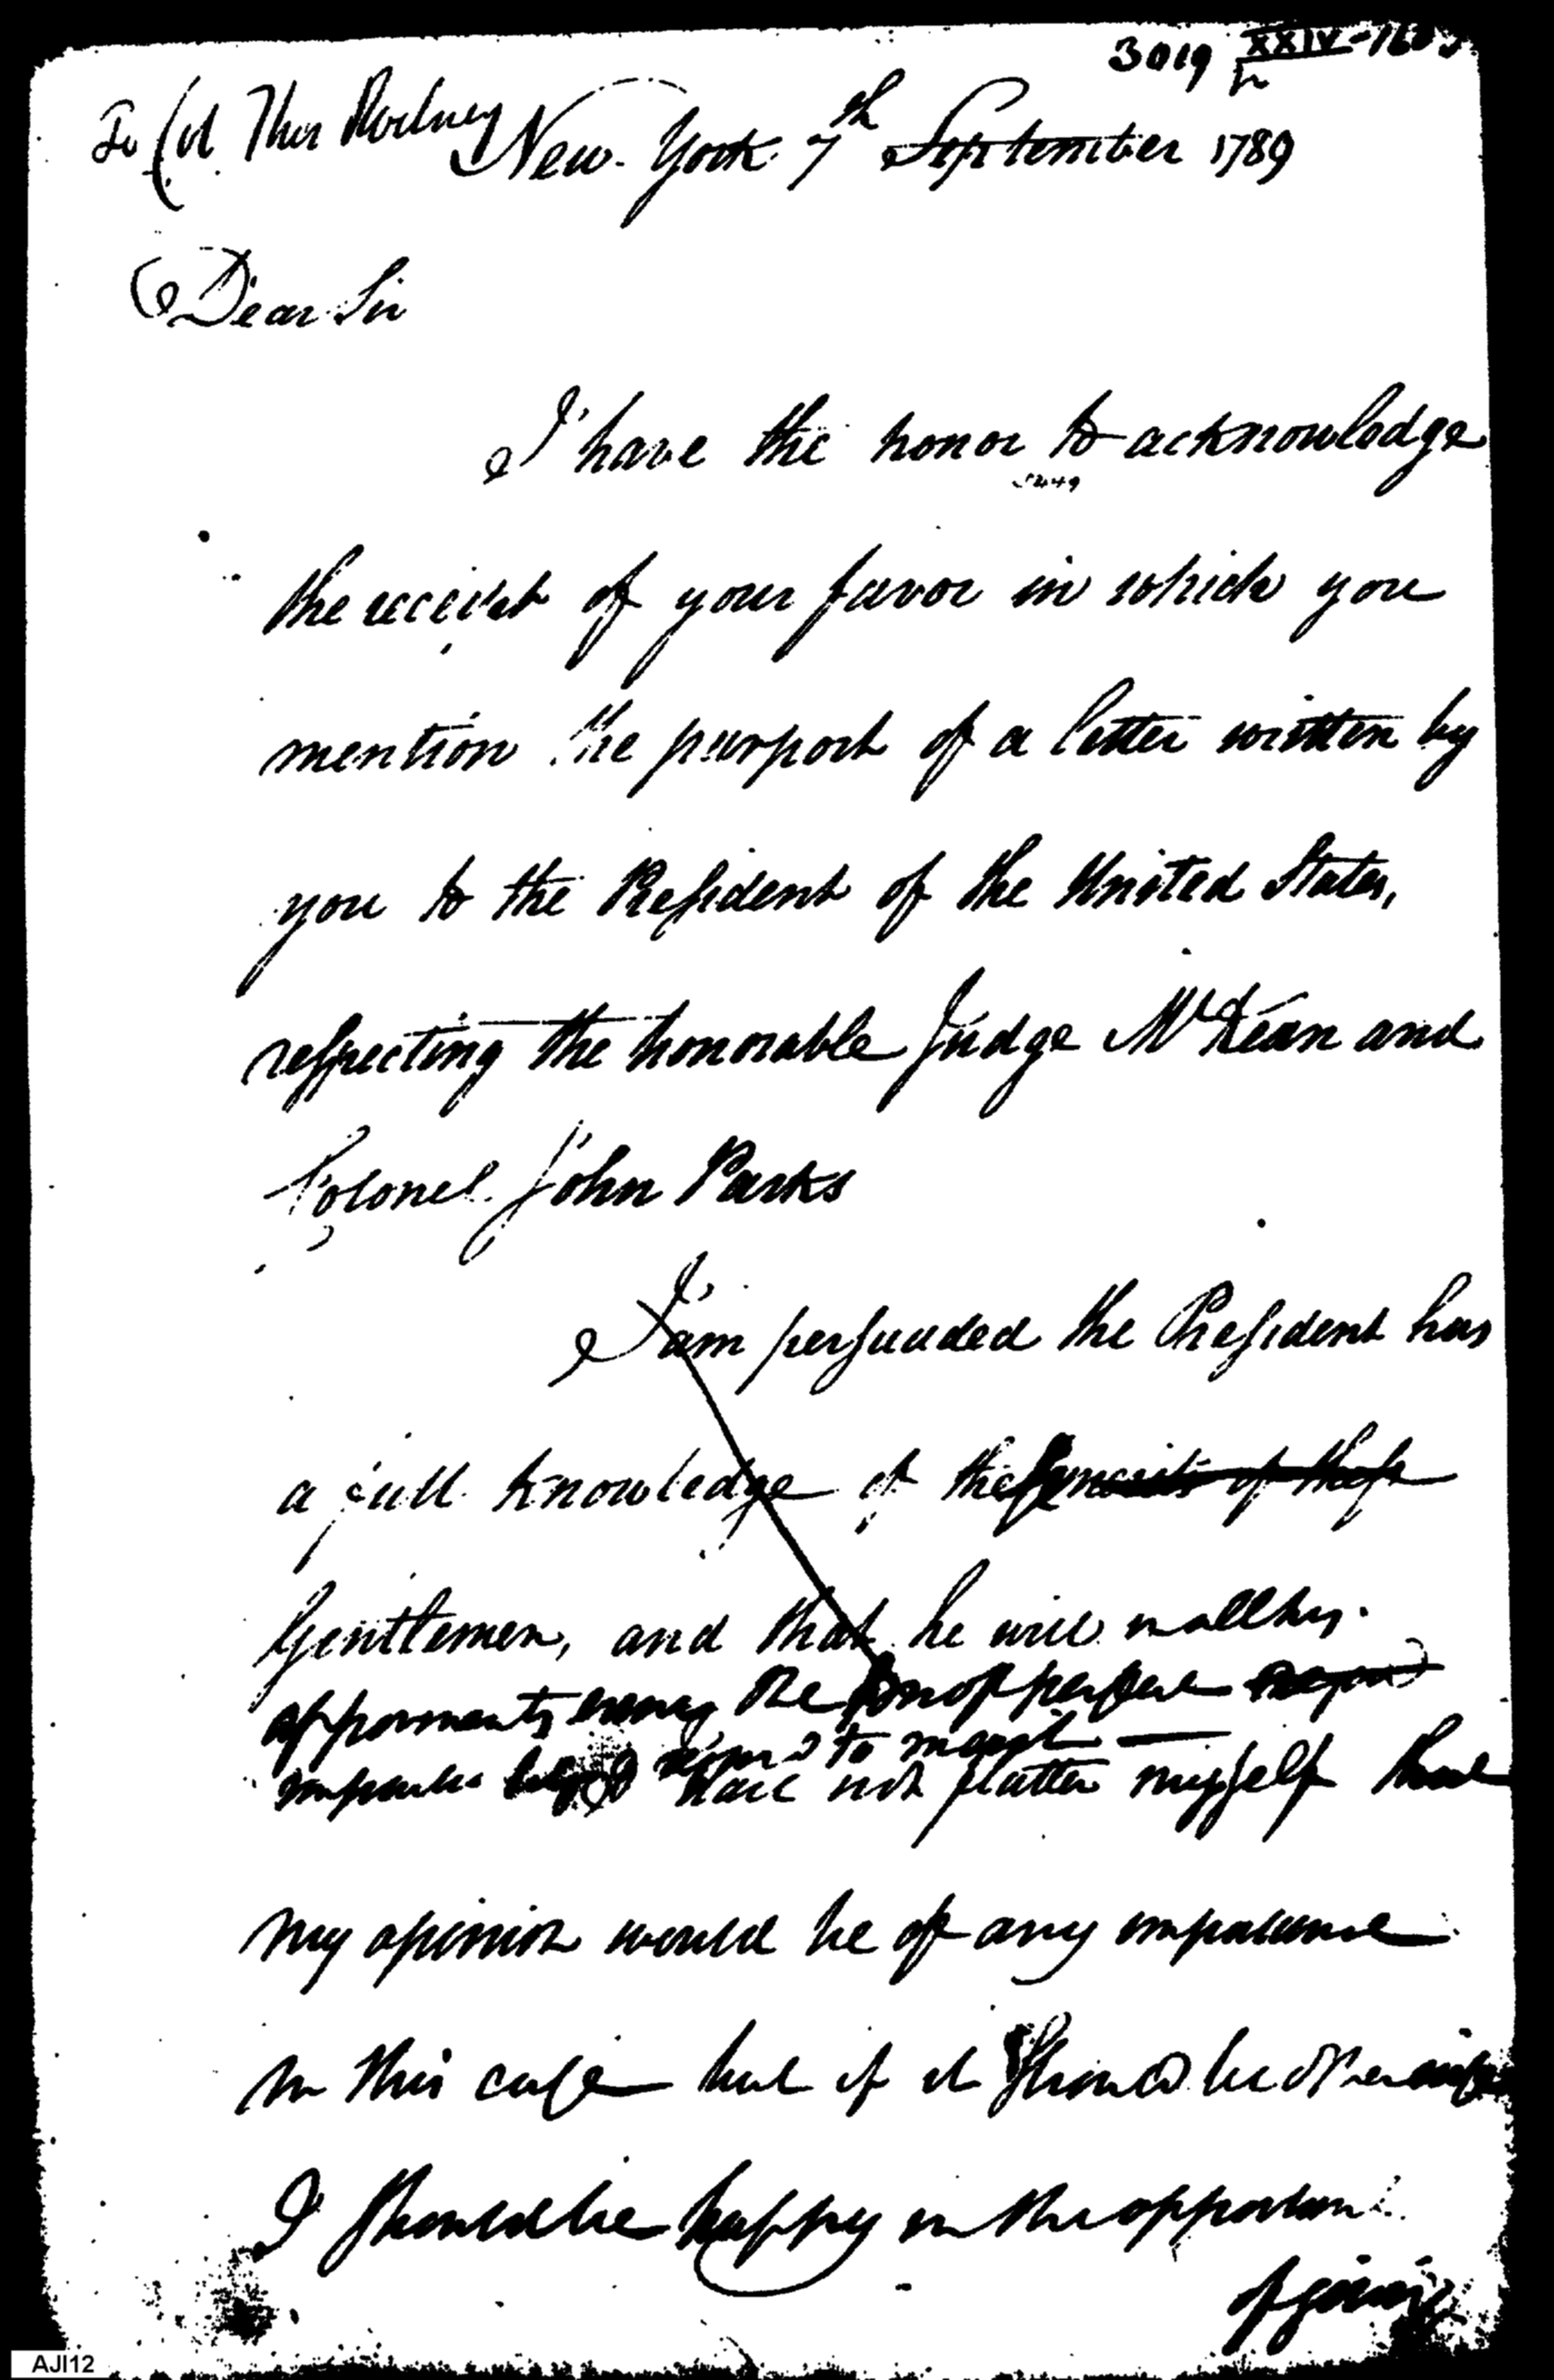 3019 XXIV-
To Col Thos Rodney New-York 7th September 1789
Dear Sir
I have the honor to acknowledge
the receipt of your favor in which you
mention the purport of a letter written by
you to the President of the United States,
respecting the honorable Judge McKean and
Colonel John Parks
I am persuaded the President has
a full knowledge of these merits of these
Gentlemen, and that he will in all his
appointments the
to merit
I have not flatter myself that
my opinion would be of any importance
in this case but if it should be otherwise
I should be happy in the opportuni
of giving
AJI12